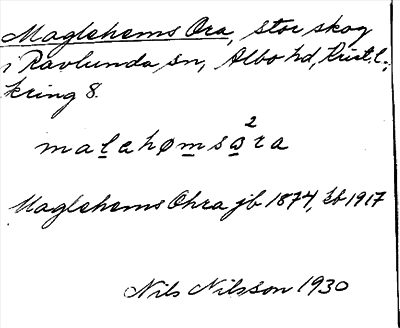 Maglehems Ora, stor skog
i Ravlunda sn, Albo hd, Krist. l.,
kring 8.
malehømso²ra
Maglehems Ohra jb 1874, kb 1917
Nils Nilsson 1930